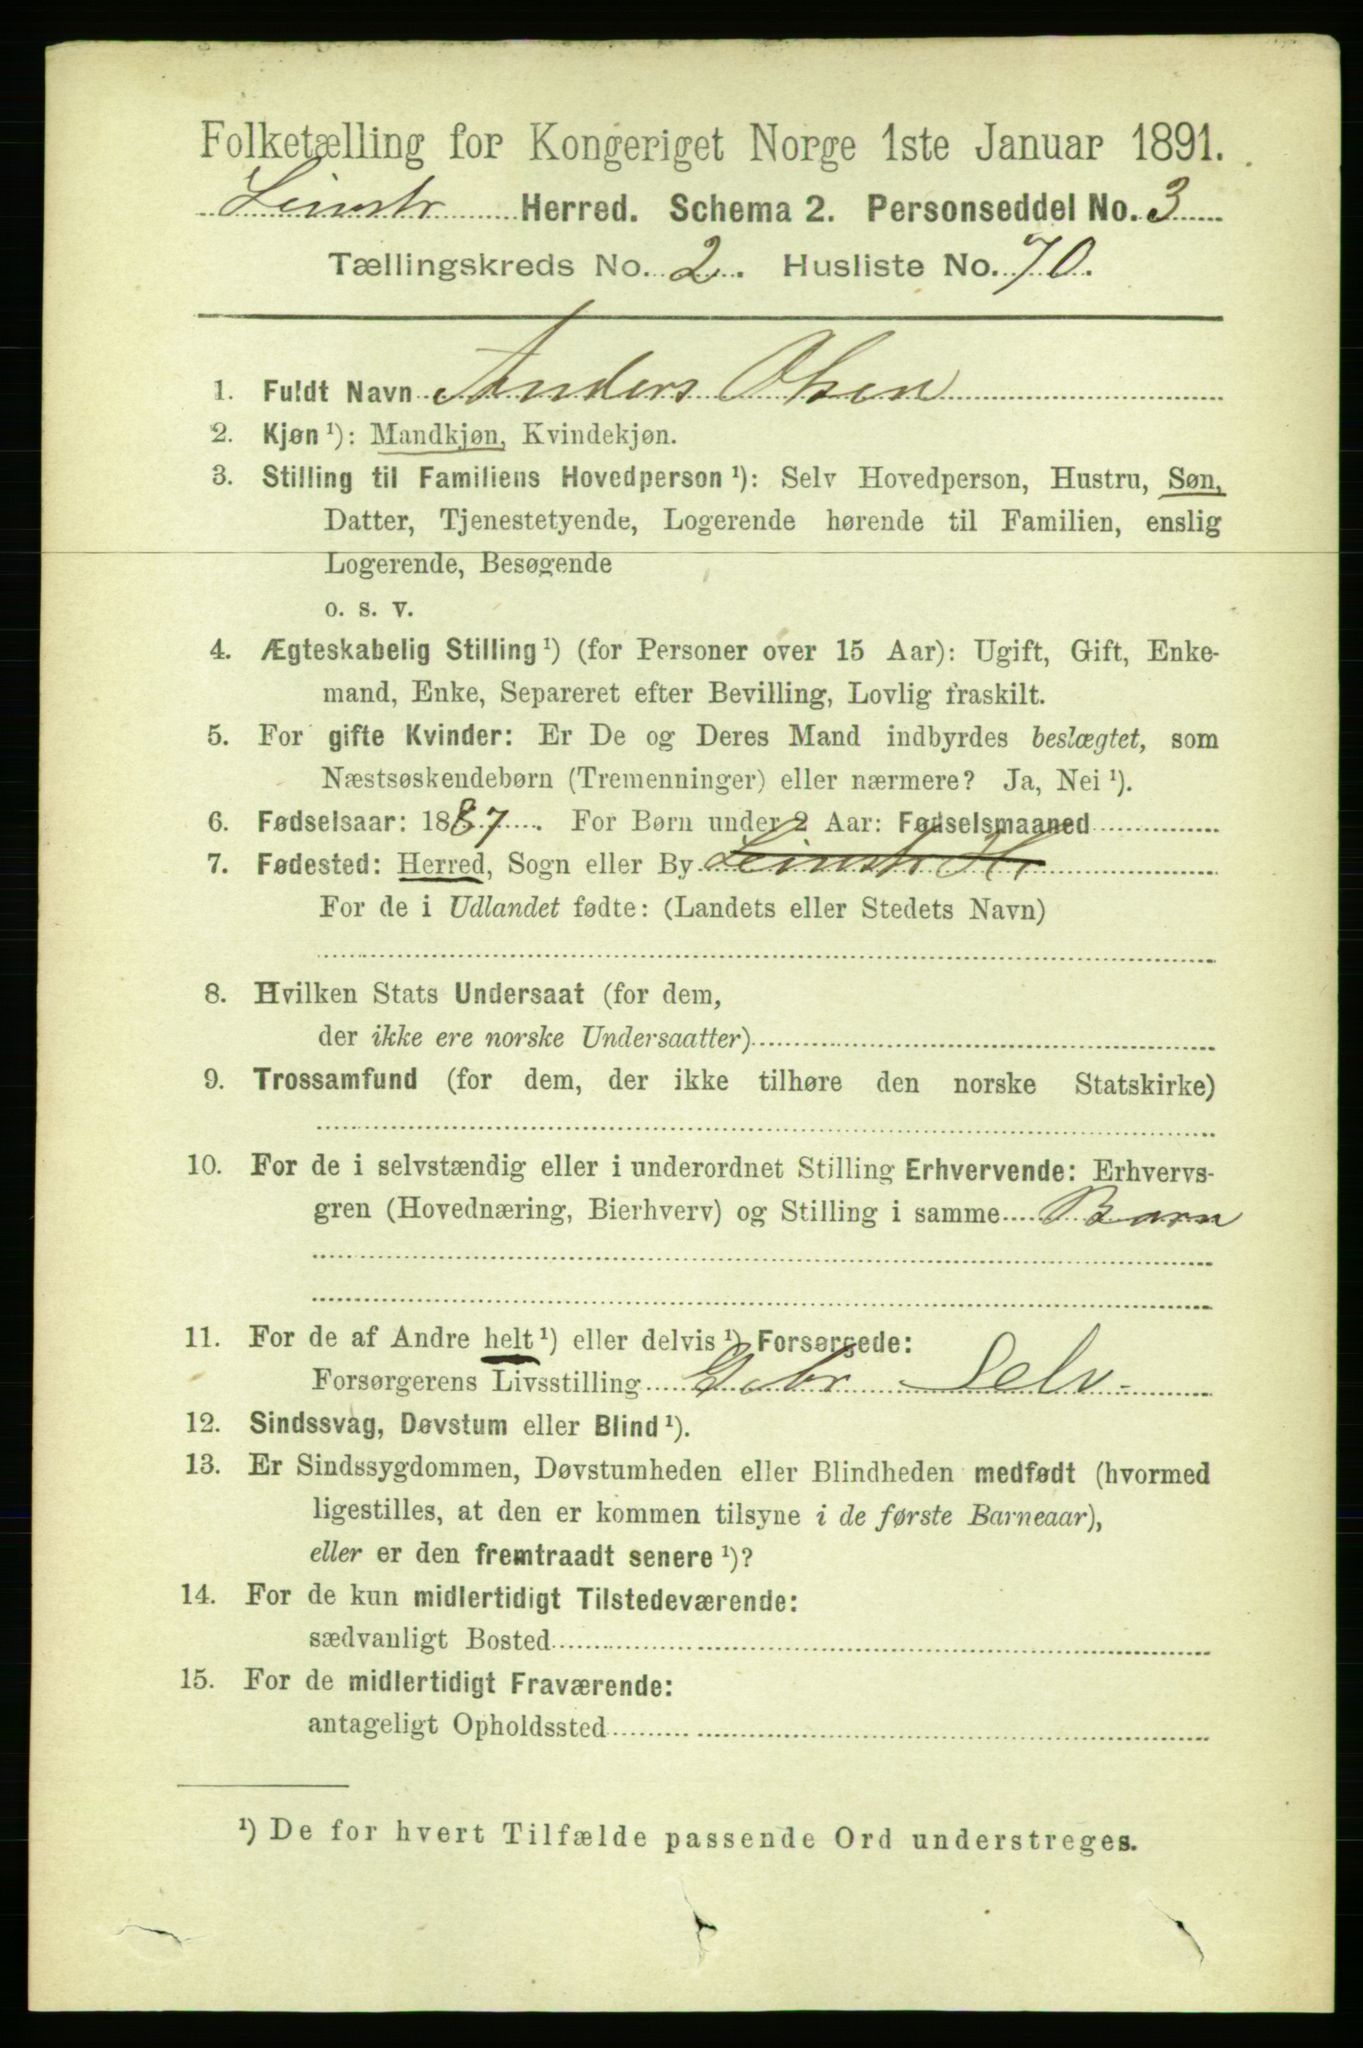 Folketælling for Kongeriget Norge 1ste Januar 1891.
Leinstr Herred. Schema 2. Personseddel No. 3
Tællingskreds No. 2. Husliste No. 70.
1. Fuldt Navn Anders Olsen
2. Kjøn ¹): Mandkjøn, Kvindekjøn.
3. Stilling til Familiens Hovedperson ¹): Selv Hovedperson, Hustru, Søn,
Datter, Tjenestetyende, Logerende hørende til Familien, enslig
Logerende, Besøgende
o. s. v.
4. Ægteskabelig Stilling ¹) (for Personer over 15 Aar): Ugift, Gift, Enke-
mand, Enke, Separeret efter Bevilling, Lovlig fraskilt.
5. For gifte Kvinder: Er De og Deres Mand indbyrdes beslægtet, som
Næstsøskendebørn (Tremenninger) eller nærmere? Ja, Nei ¹).
6. Fødselsaar: 1887. For Børn under 2 Aar: Fødselsmaaned
7. Fødested: Herred, Sogn eller By Leinstr Hr
For de i Udlandet fødte: (Landets eller Stedets Navn)
8. Hvilken Stats Undersaat (for dem,
der ikke ere norske Undersaatter)
9. Trossamfund (for dem, der ikke tilhøre den norske Statskirke)
10. For de i selvstændig eller i underordnet Stilling Erhvervende: Erhvervs-
gren (Hovednæring, Bierhverv) og Stilling i samme Barn
11. For de af Andre helt ¹) eller delvis ¹) Forsørgede:
Forsørgerens Livsstilling Gbr Selv
12. Sindssvag, Døvstum eller Blind ¹).
13. Er Sindssygdommen, Døvstumheden eller Blindheden medfødt (hvormed
ligestilles, at den er kommen tilsyne i de første Barneaar),
eller er den fremtraadt senere ¹)?
14. For de kun midlertidigt Tilstedeværende:
sædvanligt Bosted
15. For de midlertidigt Fraværende:
antageligt Opholdssted
¹) De for hvert Tilfælde passende Ord understreges.